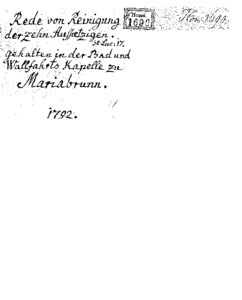 Rede von Reinigung
der zehn Aussætzigen.
St Luc: 17.
gehalten in der Bad und
Wallfahrts Kapelle zu
Mariabrunn.
1792.